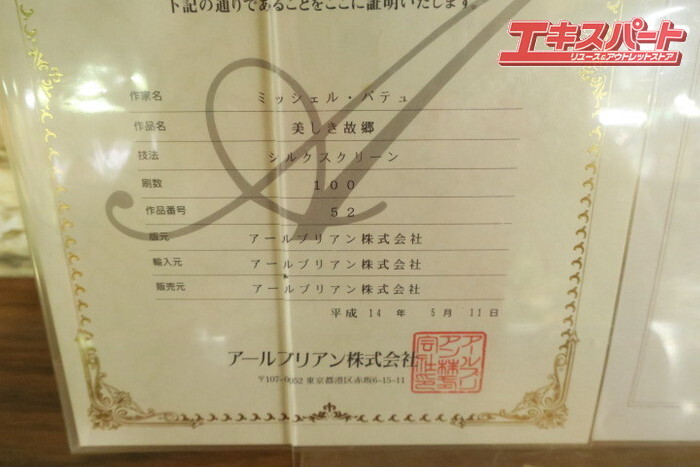 下記の通りであることをここに証明いたします。
エキスパート
リユース&アウトレットストア
作家名 ミッシェル・バテュ
作品名 美しき故郷
技法 シルクスクリーン
刷数 100
作品番号 52
版元 アールブリアン株式会社
輸入元 アールブリアン株式会社
販売元 アールブリアン株式会社
平成 14 年 5月 11日
アールブリアン株式会社
〒107-0052 東京都港区赤坂6-15-11
アールブリ
アン株式
会社印